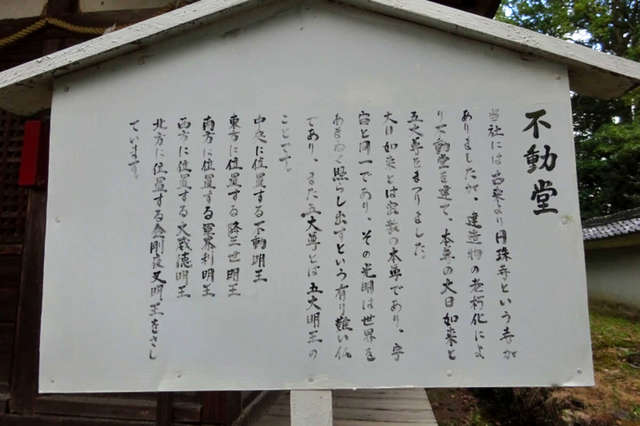 不動堂
当社には古来より円珠寺という寺が
ありましたが、建造物の老朽化によ
り不動堂を建て、本尊の大日如来と
五大尊をまつりました。
大日如来とは密教の本尊であり、宇
宙と同一であり、その光明は世界を
あまねく照らし出すという有り難い仏
であり、また五大尊とは五大明王の
ことです。
中央に位置する不動明王
東方に位置する降三世明王
南方に位置する軍荼利明王
西方に位置する大威徳明王
北方に位置する金剛夜叉明王をさし
ています。